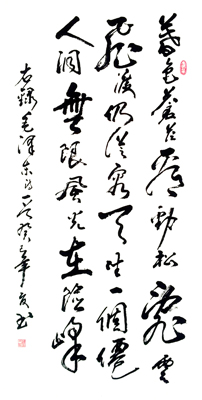 暮色蒼茫看勁松亂雲
飛渡仍從容天生一個僊
人洞無限風光在險峰
右錄毛澤東詩一首癸友书